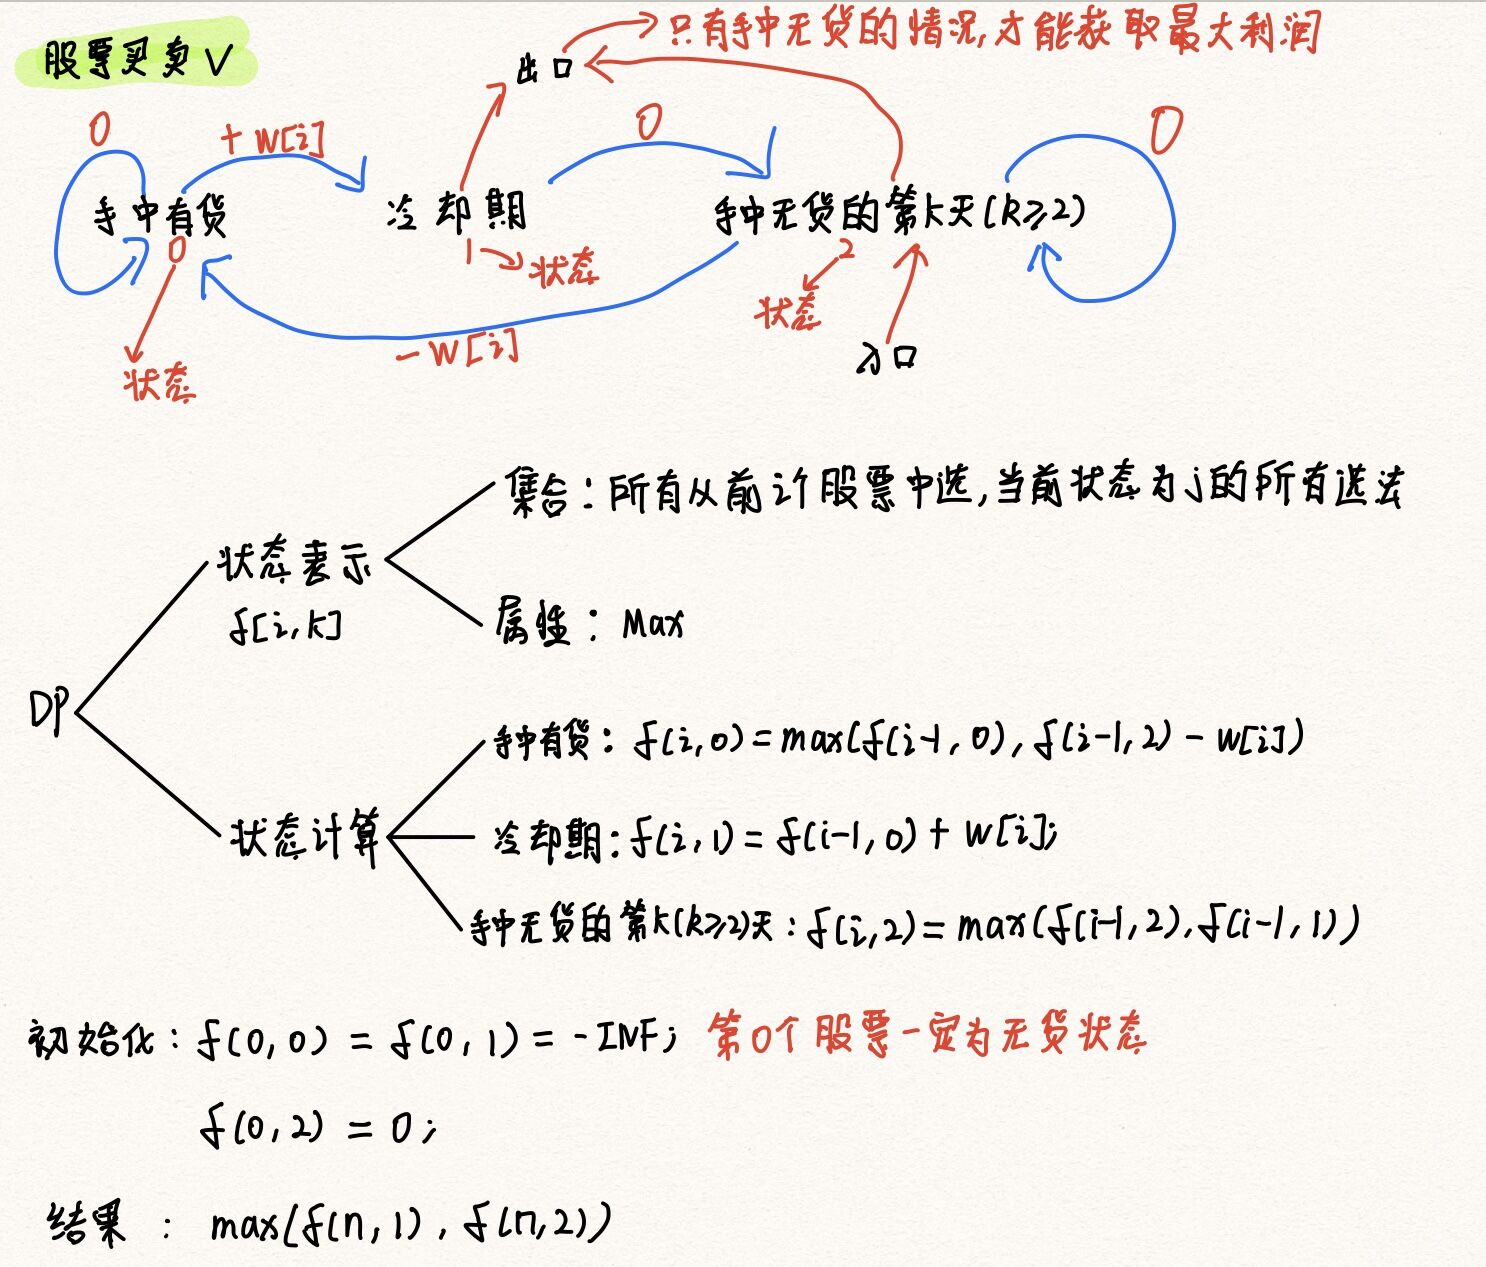 股票买卖 V
只有手中无货的情况,才能获取最大利润
出口
0
+ w[i]
0
0
手中有货
冷却期
手中无货的第k天(k≥2)
0
1
状态
2
状态
状态
- w[i]
入口
集合:所有从前i个股票中选,当前状态为j的所有选法
状态表示
f[i,k]
属性: Max
DP
手中有货: f(i,0)=max(f(i-1,0),f(i-1,2)-w[i])
状态计算
冷却期:f(i,1)=f(i-1,0)+w[i];
手中无货的第k(k≥2)天:f(i,2)=max(f(i-1,2),f(i-1,1))
初始化:f(0,0)=f(0,1)=-INF; 第0个股票一定为无货状态
f(0,2)=0;
结果 : max(f(n,1),f(n,2))